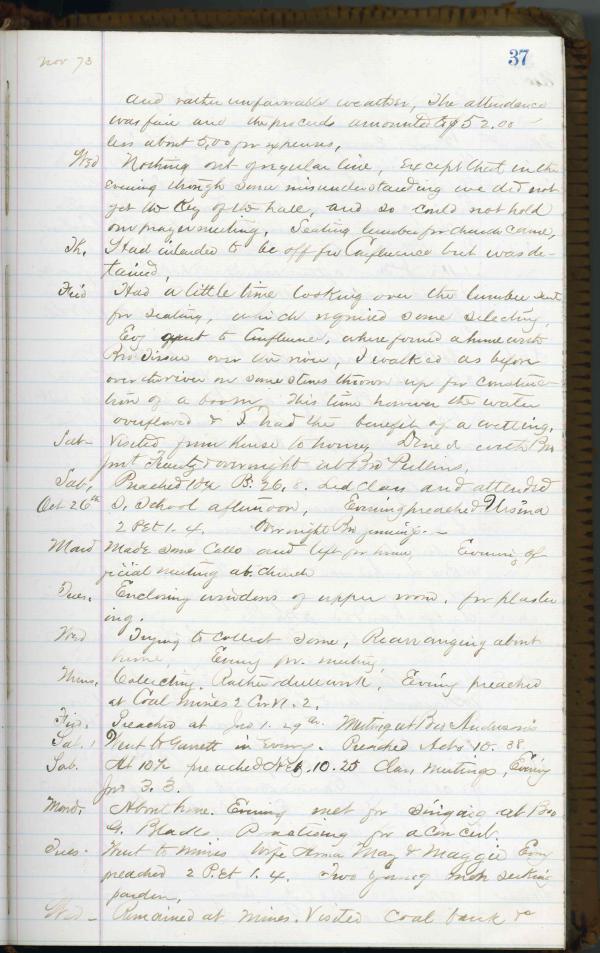 37
Nov 73
and rather unfavorable weather, The attendance
was fair and the proceeds amounted to $52.00
less about 5,00 for expenses,
Wed Nothing out of regular line, Except that in the
evening through some misunderstanding we did not
get the Key of the hall, and so could not hold
our prayer meeting, Seating lumber for church came,
Th. I had intended to be off for Confluence but was de-
tained,
Frid Had a little time looking over the lumber sent
for seating, which required some selecting,
Evg went to Confluence, where found a home with
Bro over the river, I walked as before
over the river on some stones thrown up for construc-
tion of a boom, This time however the water
overflowed & I had the benefit of a wetting.
Sat- Visited from House to house, Dined with Bro
& overnight at Bro Pullins,
Sab. Preached 10½ Ps. 26, 8, Led Class and attended
Oct 26th S. School afternoon, Evening preached Ursina
2 Pet 1. 4. Overnight Bro
Mond Made some Calls and left for home, Evening of-
ficial meeting at church
Tues. Enclosing windows of upper room, for plaster
ing.
Wed Trying to collect some, Rearranging about
home, Evening pr. meeting,
Thurs. Collecting. Rather dull work, Evening preached
at Coal Mines 2 Cor VI. 2.
Fri. Preached at Jno 1. 29th. Meeting at Bro Anderson's
Sat. 1 Went to Garrett in Evening. Preached Acts 10. 38
Sab. At 10½ preached Heb. 10. 25 Class meetings, Evening
3. 3.
Mond, About home. Evening met for singing at Bro
G. Blacks. Practising for a concert.
Tues. Went to Mines Wife Anna May & Maggie Evg
preached 2 Pet 1. 4. Two young men seeking
pardon,
Wed- Remained at mines. Visited Coal bank &c